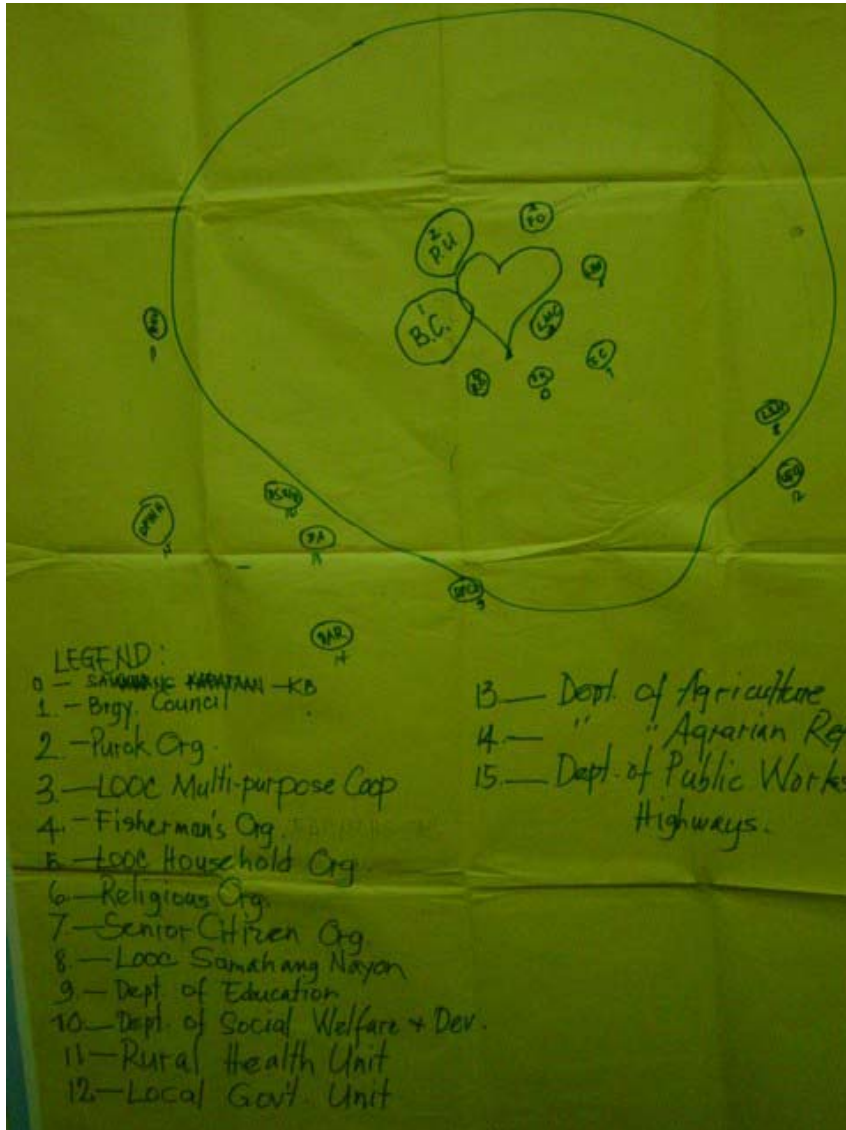 2
P.U
1
B.C.
FO
LMC
S.C
7
0
8
12
DA
DAR
14
9
LEGEND:
0 - KB
1. - Brgy. Council
2 - Purok Org.
3. - LOOC Multi-purpose Coop
4. - Fisherman's Org.
5 - LOOC Household Org.
6 - Religious Org.
7 - Senior Citizen Org.
8. - LOOC Samahang Nayon
9. - Dept of Education
10. - Dept. of Social Welfare + Dev.
11 - Rural Health Unit
12. - Local Gov't. Unit
13 - Dept. of Agriculture
14. - " " Agrarian Ref
15. - Dept. of Public Works
Highways.